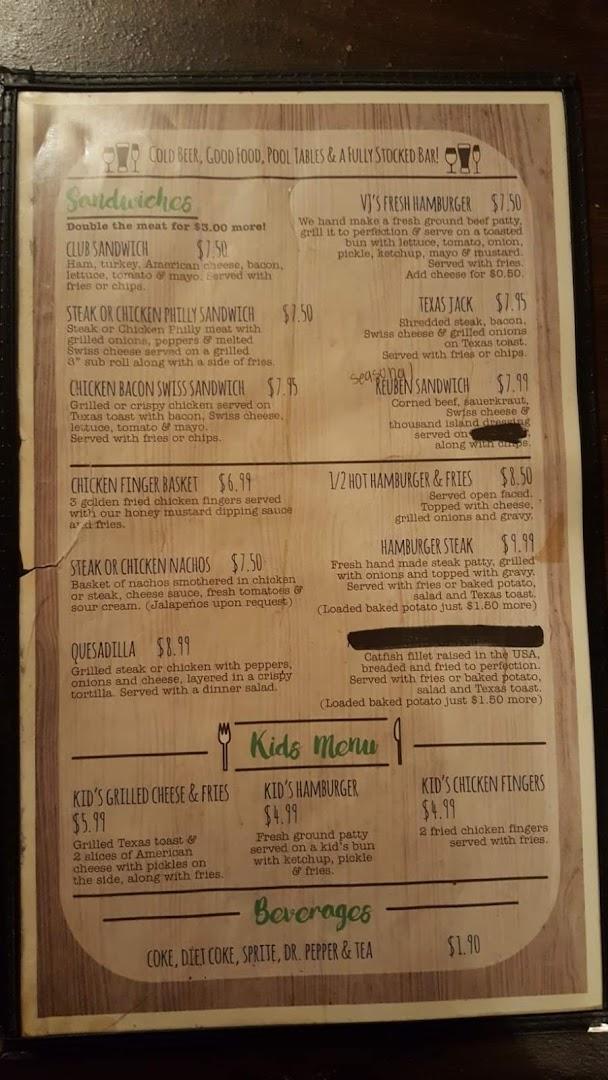 COLD BEER, GOOD FOOD, POOL TABLES & A FULLY STOCKED BAR!
Sandwiches
Double the meat for $3.00 more!
CLUB SANDWICH $7.50
Ham, turkey, American cheese, bacon,
lettuce, tomato & mayo. Served with
fries or chips.
STEAK OR CHICKEN PHILLY SANDWICH $7.50
Steak or Chicken Philly meat with
grilled onions, peppers & melted
Swiss cheese served on a grilled
8" sub roll along with a side of fries.
CHICKEN BACON SWISS SANDWICH $7.95
Grilled or crispy chicken served on
Texas toast with bacon, Swiss cheese,
lettuce, tomato & mayo.
Served with fries or chips.
VJ'S FRESH HAMBURGER $7.50
We hand make a fresh ground beef patty,
grill it to perfection & serve on a toasted
bun with lettuce, tomato, onion,
pickle, ketchup, mayo & mustard.
Served with fries.
Add cheese for $0.50.
TEXAS JACK $7.95
Shredded steak, bacon,
Swiss cheese & grilled onions
on Texas toast.
Served with fries or chips.
Seasonal
REUBEN SANDWICH $7.99
Corned beef, sauerkraut,
Swiss cheese &
thousand island dressing
served on
along with chips.
CHICKEN FINGER BASKET $6.99
3 golden fried chicken fingers served
with our honey mustard dipping sauce
and fries.
STEAK OR CHICKEN NACHOS $7.50
Basket of nachos smothered in chicken
or steak, cheese sauce, fresh tomatoes &
sour cream. (Jalapeños upon request)
QUESADILLA $8.99
Grilled steak or chicken with peppers,
onions and cheese, layered in a crispy
tortilla. Served with a dinner salad.
1/2 HOT HAMBURGER & FRIES $8.50
Served open faced.
Topped with cheese,
grilled onions and gravy.
HAMBURGER STEAK $9.99
Fresh hand made steak patty, grilled
with onions and topped with gravy.
Served with fries or baked potato,
salad and Texas toast.
(Loaded baked potato just $1.50 more)
Catfish fillet raised in the USA,
breaded and fried to perfection.
Served with fries or baked potato,
salad and Texas toast.
(Loaded baked potato just $1.50 more)
Kids Menu
KID'S GRILLED CHEESE & FRIES
$5.99
Grilled Texas toast &
2 slices of American
cheese with pickles on
the side, along with fries.
KID'S HAMBURGER
$4.99
Fresh ground patty
served on a kid's bun
with ketchup, pickle
& fries.
KID'S CHICKEN FINGERS
$4.99
2 fried chicken fingers
served with fries.
Beverages
COKE, DIET COKE, SPRITE, DR. PEPPER & TEA $1.90